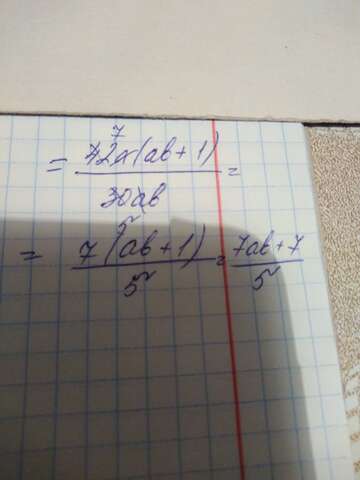 7
= 42a(ab+1) / 30ab =
5
= 7(ab+1) / 5 = 7ab+7 / 5